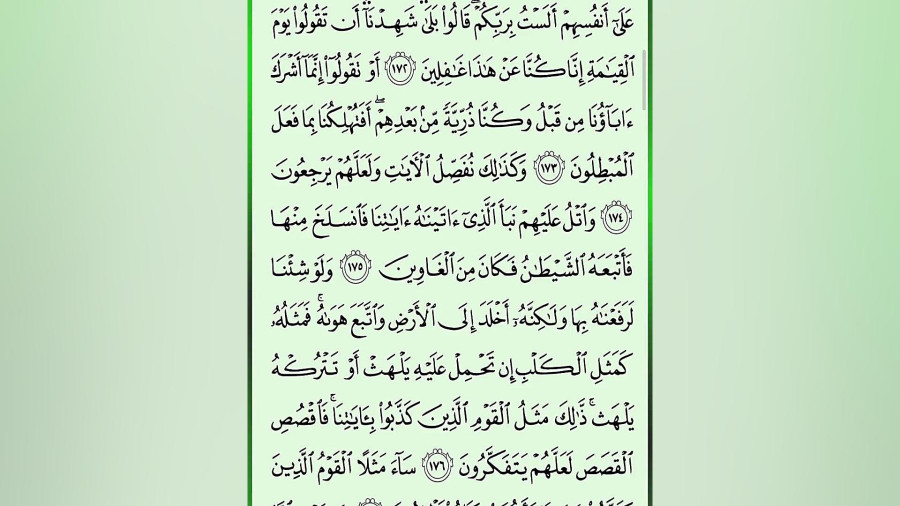 عَلَىٰٓ أَنفُسِهِمۡ أَلَسۡتُ بِرَبِّكُمۡۖ قَالُواْ بَلَىٰ شَهِدۡنَآۚ أَن تَقُولُواْ يَوۡمَ
ٱلۡقِيَٰمَةِ إِنَّا كُنَّا عَنۡ هَٰذَا غَٰفِلِينَ ١٧٢ أَوۡ تَقُولُوٓاْ إِنَّمَآ أَشۡرَكَ
ءَابَآؤُنَا مِن قَبۡلُ وَكُنَّا ذُرِّيَّةٗ مِّنۢ بَعۡدِهِمۡۖ أَفَتُهۡلِكُنَا بِمَا فَعَلَ
ٱلۡمُبۡطِلُونَ ١٧٣ وَكَذَٰلِكَ نُفَصِّلُ ٱلۡأٓيَٰتِ وَلَعَلَّهُمۡ يَرۡجِعُونَ
١٧٤ وَٱتۡلُ عَلَيۡهِمۡ نَبَأَ ٱلَّذِيٓ ءَاتَيۡنَٰهُ ءَايَٰتِنَا فَٱنسَلَخَ مِنۡهَا
فَأَتۡبَعَهُ ٱلشَّيۡطَٰنُ فَكَانَ مِنَ ٱلۡغَاوِينَ ١٧٥ وَلَوۡ شِئۡنَا
لَرَفَعۡنَٰهُ بِهَا وَلَٰكِنَّهُۥٓ أَخۡلَدَ إِلَى ٱلۡأَرۡضِ وَٱتَّبَعَ هَوَىٰهُۚ فَمَثَلُهُۥ
كَمَثَلِ ٱلۡكَلۡبِ إِن تَحۡمِلۡ عَلَيۡهِ يَلۡهَثۡ أَوۡ تَتۡرُكۡهُ
يَلۡهَثۚ ذَّٰلِكَ مَثَلُ ٱلۡقَوۡمِ ٱلَّذِينَ كَذَّبُواْ بِـَٔايَٰتِنَاۚ فَٱقۡصُصِ
ٱلۡقَصَصَ لَعَلَّهُمۡ يَتَفَكَّرُونَ ١٧٦ سَآءَ مَثَلًا ٱلۡقَوۡمُ ٱلَّذِينَ